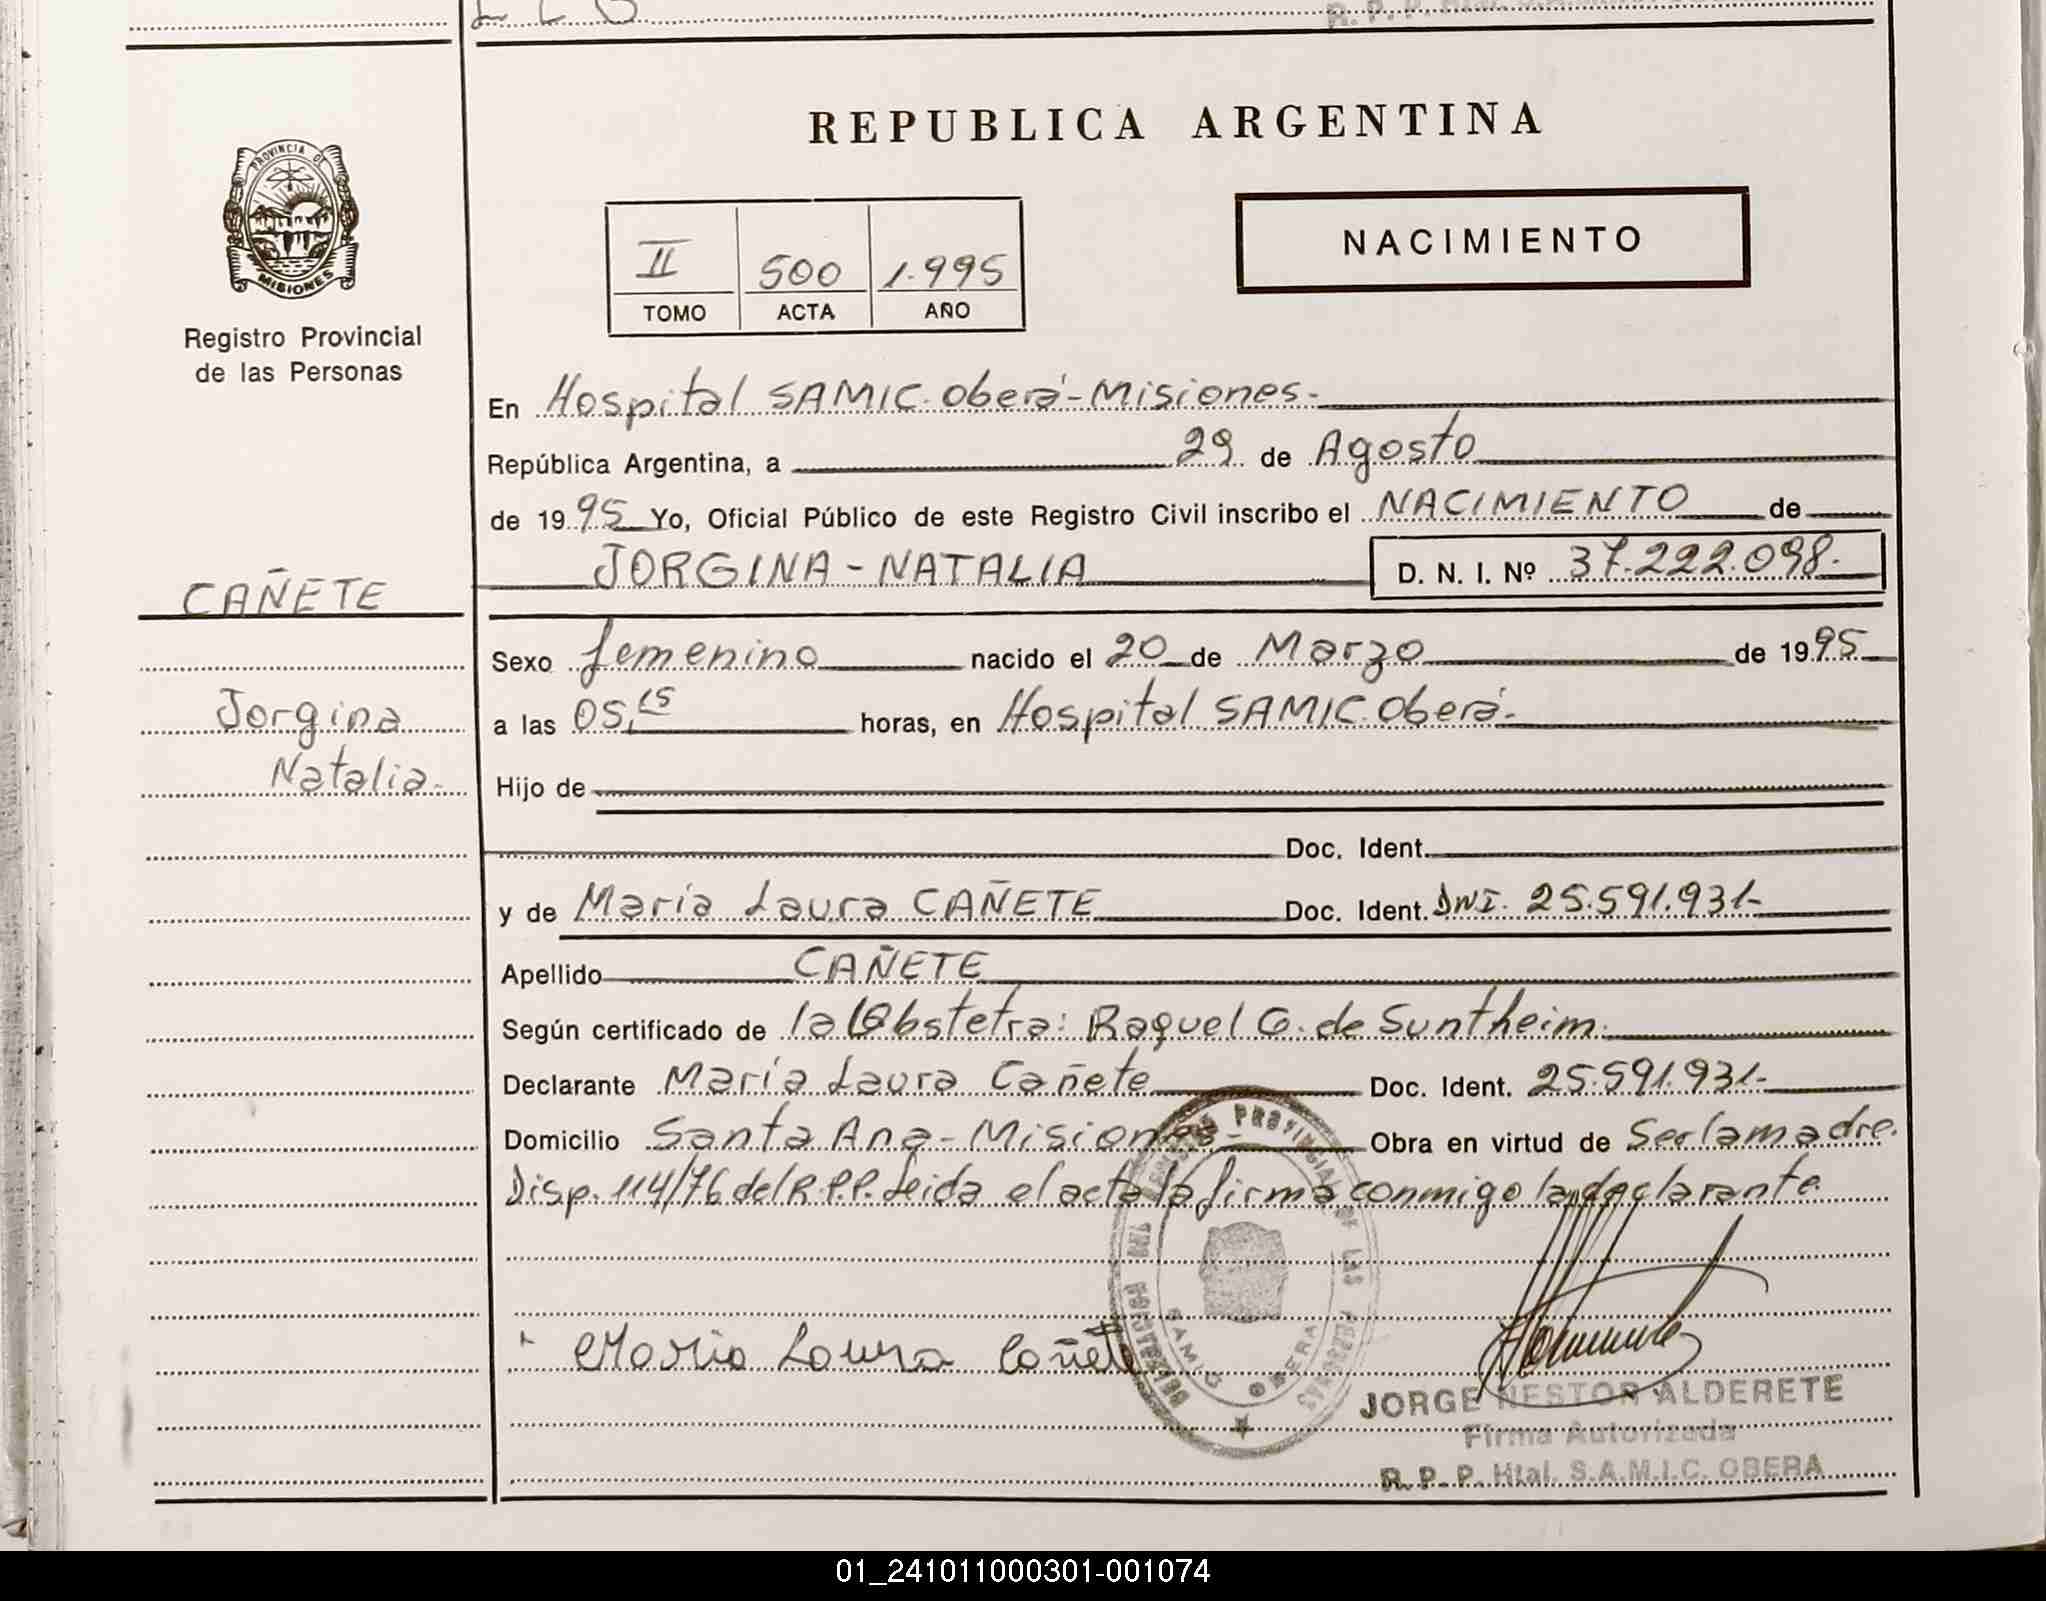 REPUBLICA ARGENTINA
PROVINCIA DE
MISIONES
Registro Provincial
de las Personas
II 500 1.995
TOMO ACTA AÑO
NACIMIENTO
En Hospital SAMIC. Oberá-Misiones.-
República Argentina, a 29 de Agosto
de 1995 Yo, Oficial Público de este Registro Civil inscribo el NACIMIENTO de
JORGINA-NATALIA D. N. I. Nº 37.222.098.-
CAÑETE
Jorgina
Natalia.-
Sexo femenino nacido el 20 de Marzo de 1995
a las 05,15 horas, en Hospital SAMIC. Oberá.-
Hijo de
Doc. Ident.
y de María Laura CAÑETE Doc. Ident. DNI. 25.591.931.-
Apellido CAÑETE
Según certificado de la Obstetra: Raquel G. de Suntheim.
Declarante María Laura Cañete Doc. Ident. 25.591.931.-
Domicilio Santa Ana-Misiones- Obra en virtud de Ser la madre.
Disp. 114/76 del R.P.P. Leida el acta la firma conmigo la declarante
Maria Laura Cañete
PROVINCIAL DE LAS PERSONAS
SAMIC OBERA
JORGE NESTOR ALDERETE
Firma Autorizada
R. P. P. Htal. S.A.M.I.C. OBERA
01_241011000301-001074